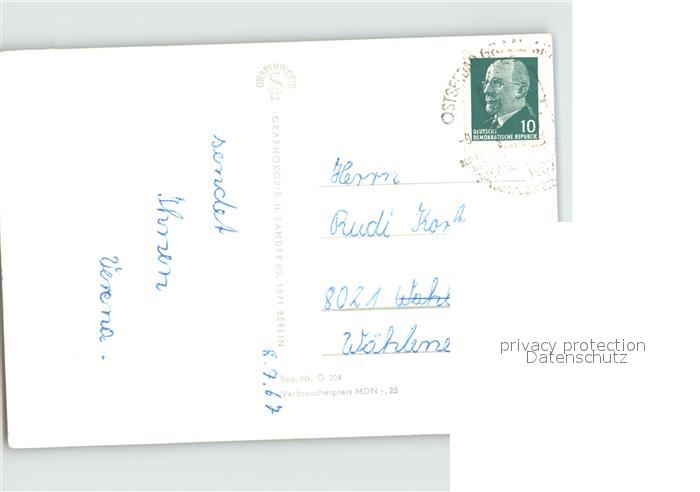 sendet
Ihnen
Verena.
8.7.67
GRAPHOKOPIE
GRAPHOKOPIE H. SANDER KG. 1071 BERLIN
Best.-Nr. G 204
Verbraucherpreis MDN -,25
OSTSEEBAD GRAAL-MÜ
10
DEUTSCHE
DEMOKRATISCHE REPUBLIK
Herrn
Rudi
8021
privacy protection
Datenschutz